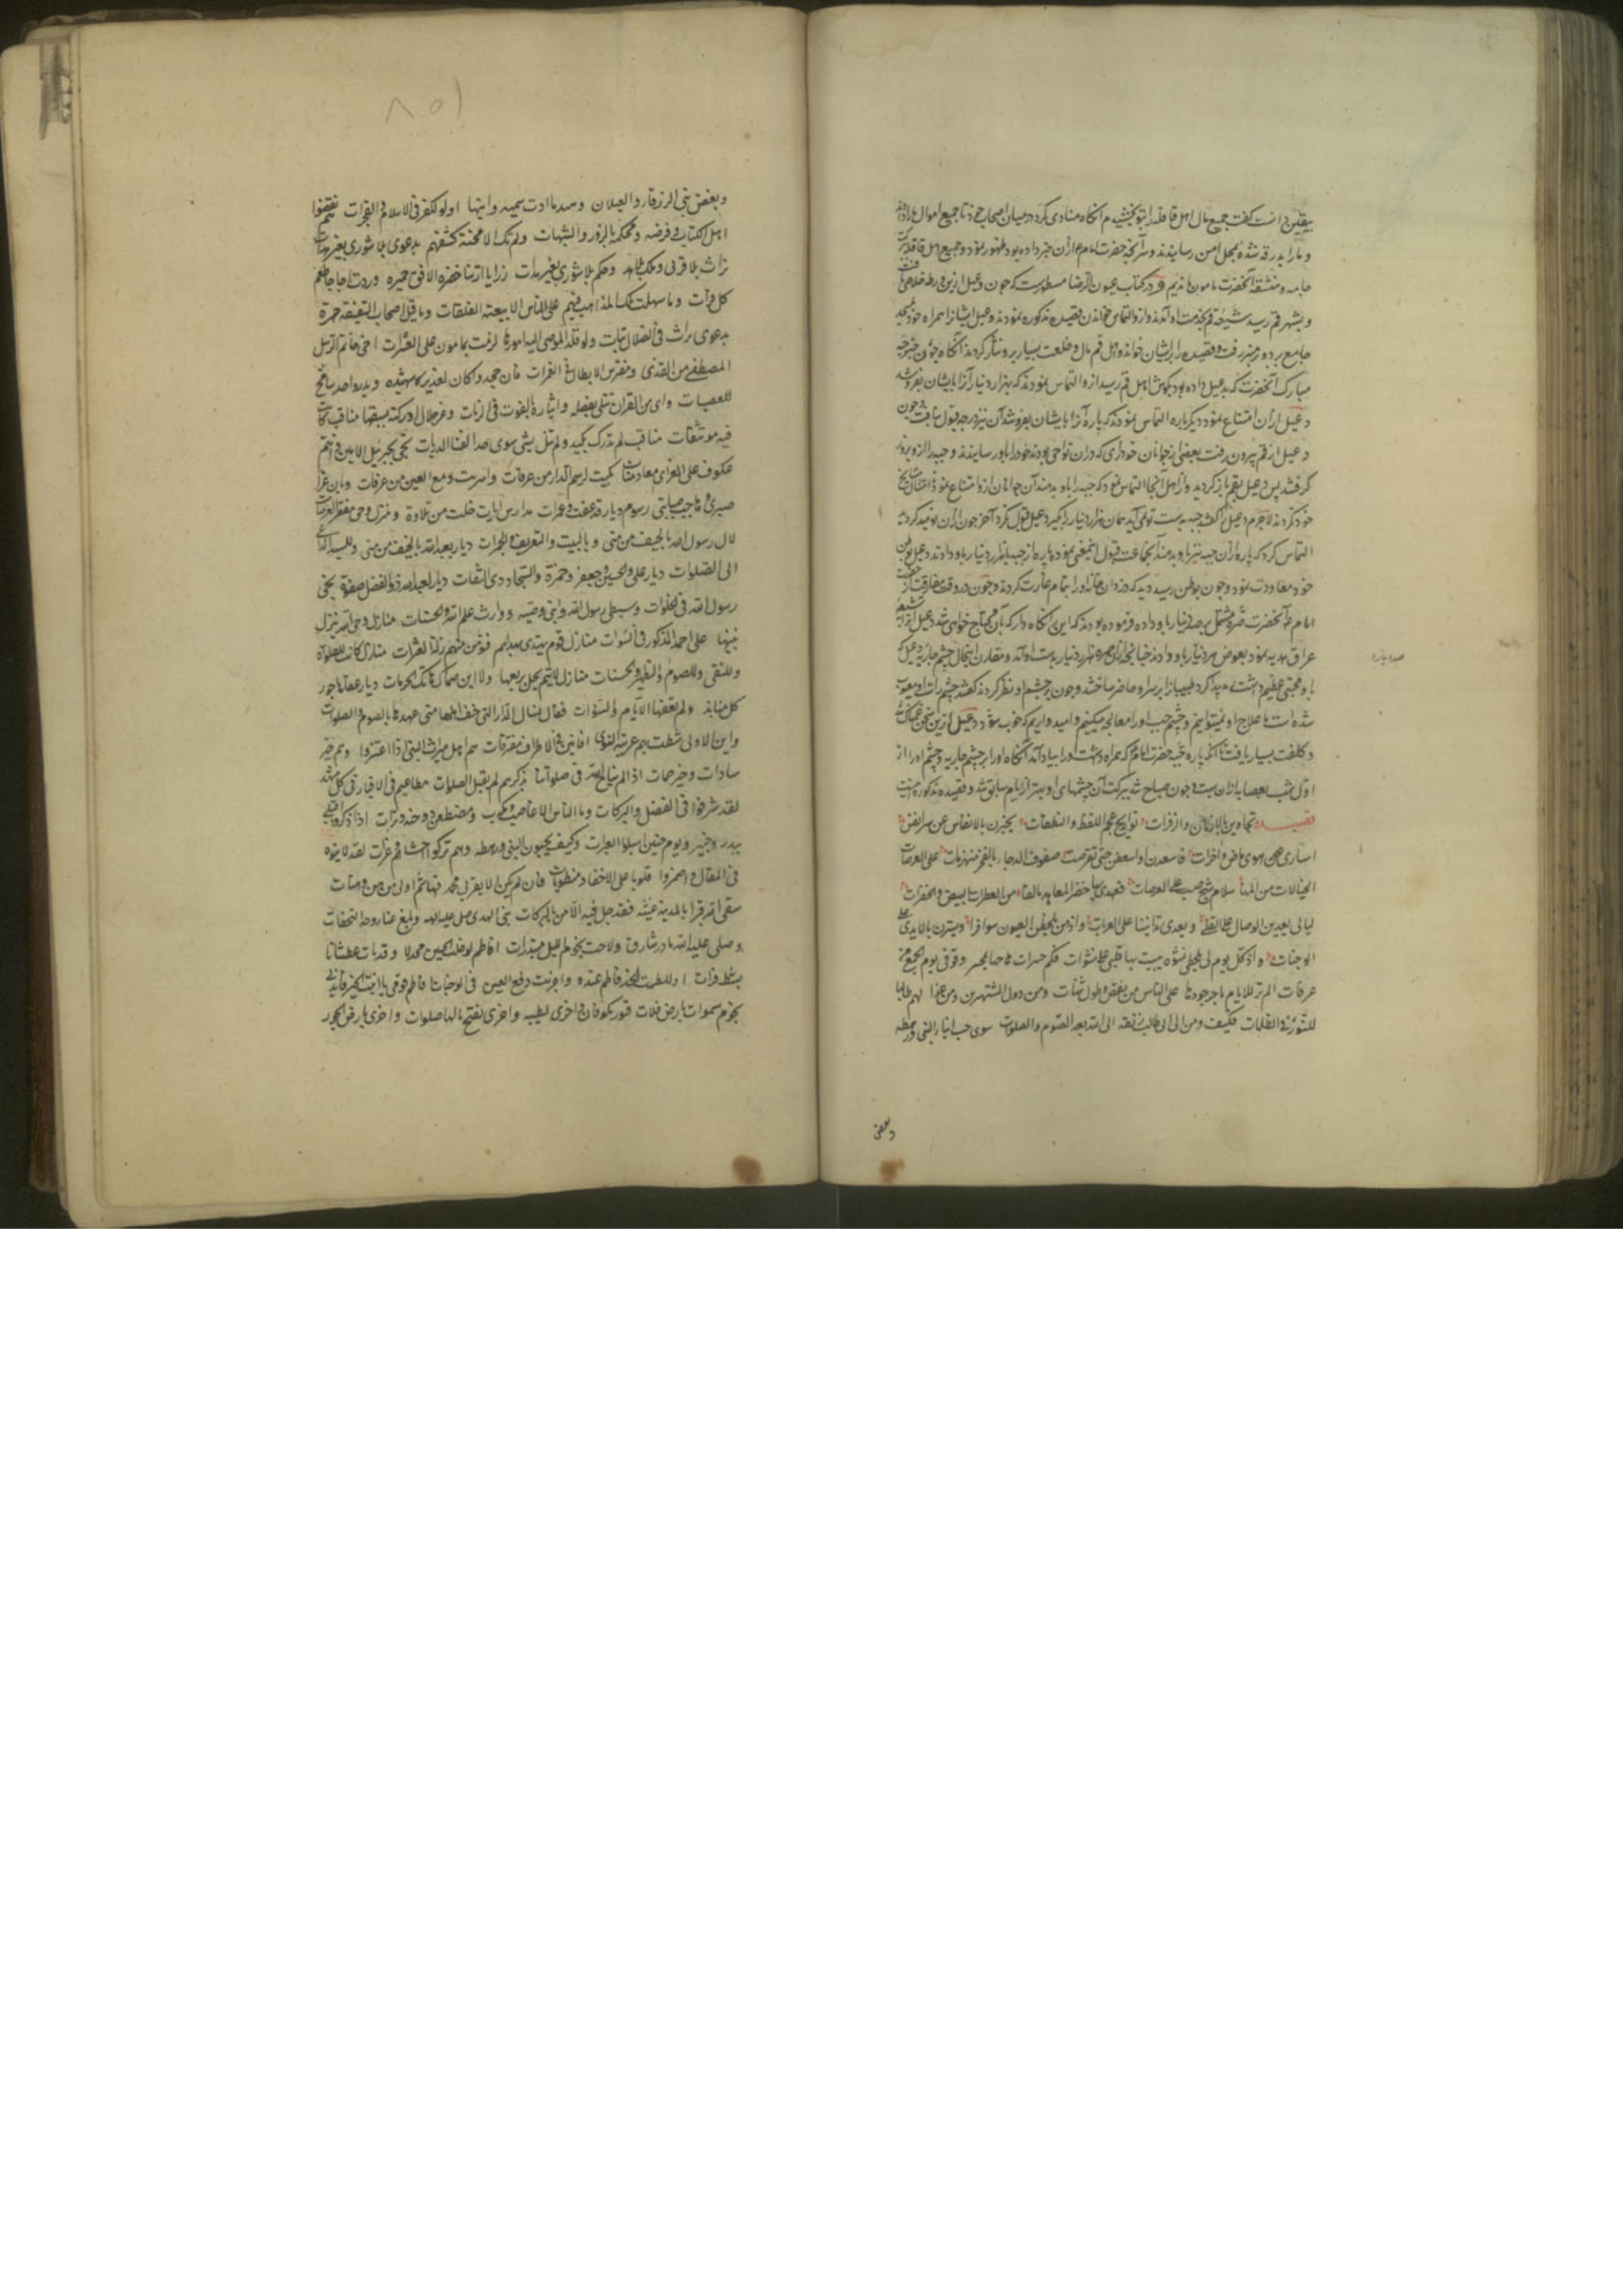 بیقین دانست گفت جمیع مال اهل قافله را بتو بخشیدم آنگاه منادی کرد در میان اصحاب خود تا جمیع اموال ما را دادند
و ما را بدرقه شده بمحل امن رسانیدند و سر آنچه حضرت امام از آن خبر داده بود بظهور نمود و جمیع اهل قافله ببرکت
جامه و منشفه آنحضرت مامون ماندیم و در کتاب عیون الرضا مسطورست که چون دعبل ازین ورطه خلاصی یافت
و بشهر قم رسید شیعه قم بخدمت او آمدند و ازو التماس خواندن قصیده مذکوره نمودند دعبل ایشانرا همراه خود بمسجد
جامع برده بر منبر رفت و قصیده را بر ایشان خواند و اهل قم مال و خلعت بسیار برو نثار کردند آنگاه چون خبر جبه
مبارک آنحضرت که بدعبل داده بود بگوش اهل قم رسید ازو التماس نمودند که بهزار دینار آنرا بایشان بفروشد
دعبل از آن امتناع نمود دیگرباره التماس نمودند که پاره آنرا بایشان بفروشد آن نیز درجه قبول نیافت و چون
دعبل از قم بیرون رفت بعضی از جوانان خودرای که در آن نواحی بودند خود را باو رسانیدند و جبه را ازو بزور
گرفتند پس دعبل بقم باز گردید و از اهل آنجا التماس نمود که جبه را باو بدهند آن جوانان ازو امتناع نمودند و اطاعت مشایخ
خود نکردند لاجرم دعبل را گفتند جبه بدست تو نمی آید همان هزار دینار را بگیر دعبل قبول نکرد آخر چون از آن نومید گردید
التماس کرد که پاره از آن جبه نیز باو بدهند آنجماعت قبول اینمعنی نموده پاره از جبه با هزار دینار باو دادند دعبل بوطن
خود معاودت نمود و چون بوطن رسید دید که دزدان خانه او را بتمام غارت کردند و چون در وقت مفارقت از حضرت
امام ع آنحضرت صره مشتمل بر صد دینار باو داده فرموده بودند که این نگاه دار که بآن محتاج خواهی شد دعبل آنرا بشیعه
عراق هدیه نمود بعوض هر دینار باو صد دادند چنانچه از آن صره هزار دینار بدست او آمد و مقارن اینحال چشم جاریه دعبل که
باو محبتی عظیم داشت رمد پیدا کرد طبیبانرا بر سر او حاضر ساختند و چون بر چشم او نظر کردند گفتند چشم راست او معیوب
شده است ما علاج او نمیتوانیم و چشم چپ او را معالجه میکنیم و امیدواریم که خوب شود دعبل ازین سخن غمناک شد
و کلفت بسیار یافت تا آنکه پاره جبه حضرت امام ع که همراه داشت او را بیاد آمد آنگاه او را بر چشم جاریه و چشم او را از
اول شب بعصابه از آن بست و چون صباح شد ببرکت آن چشمهای او بهتر از ایام سابق شد و قصیده مذکوره اینست
قصیده تجاوبن بالارنان والزفرات نوایح عجم اللفظ والنطقات یخبرن بالانفاس عن سر انفس
اساری هوی ماض و آخرات فاسعدن او اسعفن حتی تقوضت صفوف الدجا بالفجر منهزمات علی العرصات
الخیالات من المها سلام شج صب علی العرصات فعهدی بها خضر المعاهد مالفا من العطرات البیض والخفرات
لیالی یعدین الوصال علی القلی و یعدی تدانینا علی الغربات و اذ هن یلحظن العیون سوافرا و یسترن بالایدی علی
الوجنات و اذ کل یوم لی بلحظی نشوه یبیت بها قلبی علی نشوات فکم حسرات هاجها بمحسر وقوفی یوم الجمع من
عرفات الم تر للایام ما جر جورها علی الناس من نقض و طول شتات ومن دول المستهزین ومن غدا بهم طالبا
للنور فی الظلمات فکیف ومن انی الی طالب زلفه الی الله بعد الصوم والصلوات سوی حب ابناء النبی و رهطه
وبغض
صد دینار
١٥٨
وبغض بنی الزرقاء والعبلات وهند ما ادت سمیه وابنها اولو الکفر فی الاسلام والفجرات هم نقضوا
اهل الکتاب و فرضه و محکمه بالزور والشبهات ولم تک الا محنة کشفتهم بدعوی بلا شوری بغیر هداة
تراث بلا قربی وملک بلا هدی وحکم بلا شوری بغیر هدات رزایا ارتنا خضرة الافق حمرة وردت اجاجا طعم
کل فرات وما سهلت تلک المذاهب فیهم علی الناس الا بیعة الفلتات وما قیل اصحاب السقیفة جهرة
بدعوی تراث فی الضلال نتات ولو قلدوا الموصی الیه امورها لزمت بمامون علی العثرات اخی خاتم الرسل
المصطفی من القذی ومفترس الابطال فی الغمرات فان جحدوا کان الغدیر شهیده وبدر واحد شامخ
الهضبات وای من القران تتلی بفضله وایثاره بالقوت فی اللزبات وعز خلال ادرکته بسبقها مناقب کانت
فیه موتنفات مناقب لم تدرک بکید ولم تنل بشیء سوی حد القنا الذربات نجی لجبریل الامین وانتم
عکوف علی العزی معا ومنات بکیت لرسم الدار من عرفات واذریت دمع العین من عرفات وبان عرا
صبری وهاجت صبابتی رسوم دیار قد عفت وعرات مدارس ایات خلت من تلاوة ومنزل وحی مقفر العرصات
لال رسول الله بالخیف من منی وبالبیت والتعریف والجمرات دیار لعبدالله بالخیف من منی وللسید الداعی
الی الصلوات دیار علی والحسین وجعفر وحمزة والسجاد ذی الثفنات دیار لعبدالله والفضل صنوه نجی
رسول الله فی الخلوات وسبطی رسول الله وابنی وصیه ووارث علم الله والحسنات منازل وحی الله ینزل
بینها علی احمد المذکور فی السورات منازل قوم یهتدی بهداهم فتومن منهم زلة العثرات منازل کانت للصلوة
وللتقی وللصوم والتطهیر والحسنات منازل لا تیم یحل بربعها ولا ابن صهاک فاتک الحرمات دیار عفاها جور
کل منابذ ولم تعف للایام والسنوات قفا نسال الدار التی خف اهلها متی عهدها بالصوم والصلوات
واین الاولی شطت بهم غربة النوی افانین فی الاطراف مفترقات هم اهل میراث النبی اذا اعتزوا وهم خیر
سادات وخیر حمات اذا لم نناج الله فی صلواتنا بذکرهم لم یقبل الصلوات مطاعیم فی الاقتار فی کل مشهد
لقد شرفوا فی الفضل والبرکات وما الناس الا غاصب ومکذب ومضطغن ذو احنة وترات اذا ذکروا قتلی
ببدر وخیبر ویوم حنین اسبلوا العبرات وکیف یحبون النبی ورهطه وهم ترکوا احشائهم وغرات لقد لاینوه
فی المقال واضمروا قلوبا علی الاحقاد منطویات فان لم یکن الا بقربی محمد فهاشم اولی من هن وهنات
سقی الله قبرا بالمدینة غیثه فقد حل فیه الامن بالبرکات نبی الهدی صلی علیه ملیکه وبلغ عنا روحه التحفات
وصلی علیه الله ما ذر شارق ولاحت نجوم اللیل مبتدرات افاطم لو خلت الحسین مجدلا وقد مات عطشانا
بشط فرات اذا للطمت الخد فاطم عنده واجریت دمع العین فی الوجنات افاطم قومی یا ابنة الخیر فاندبی
نجوم سموات بارض فلات قبور بکوفان واخری بطیبه واخری بفخ نالها صلوات واخری بارض الجوز